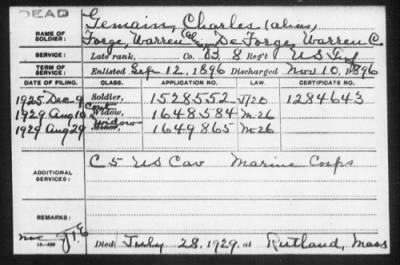 DEAD
NAME OF SOLDIER: Gemain, Charles (alias)
Forge, Warren C., De Forge, Warren C.
SERVICE: Late rank, Co. B, 8 Reg't US Inf
TERM OF SERVICE: Enlisted Sep 12, 1896 Discharged Nov 10, 1896
DATE OF FILING. CLASS. APPLICATION NO. LAW. CERTIFICATE NO.
1925 Dec 9 Soldier, 1528552 J/20 1284643
Cont
1929 Aug 10 Widow, 1648584 M-26
Widow
1929 Aug 29 Minor, 1649865 M-26
ADDITIONAL SERVICES: C 5 US Cav Marine Corps
REMARKS:
Died July 28, 1929, at Rutland, Mass